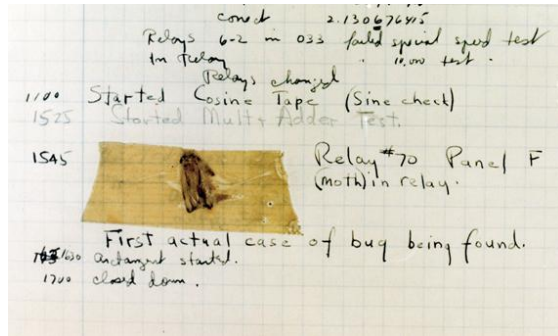 conect 2.130676415
Relays 6-2 in 033 failed special speed test
In Relay " 10.000 test .
Relays changed
1100 Started Cosine Tape (Sine check)
1525 Started Mult + Adder Test.
1545 Relay #70 Panel F
(moth) in relay.
First actual case of bug being found.
1630 antangent started.
1700 closed down .